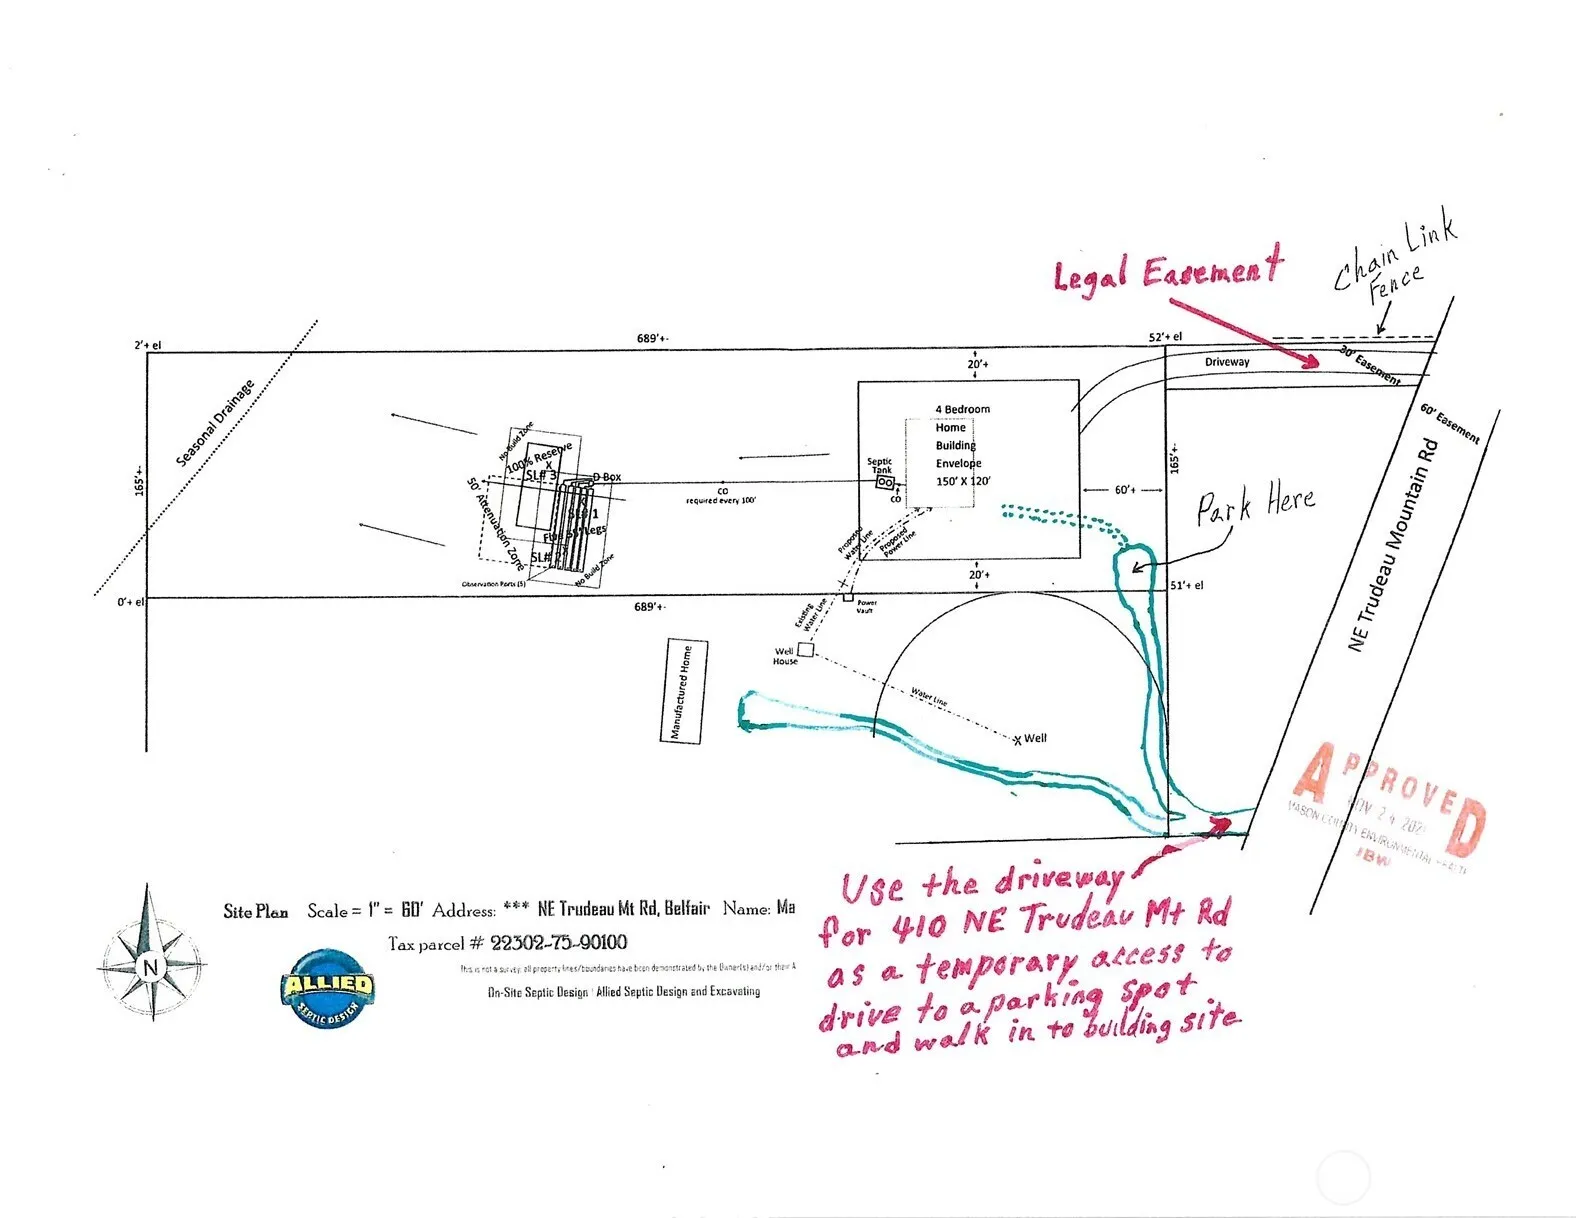 Chain Link
Fence
Legal Easement
2'+ el
689'+-
52'+ el
20'+
Driveway
30' Easement
60' Easement
Seasonal Drainage
165'+-
4 Bedroom
Home
Building
Envelope
150' X 120'
No Build Zone
100% Reserve
X
SL# 3
D Box
50' Attenuation Zone
SL# 1
SL# 2
No Build Zone
Observation Ports (5)
CO
required every 100'
Septic
Tank
CO
60'+
165'+-
Park Here
NE Trudeau Mountain Rd
Proposed
Water Line
Proposed
Power Line
20'+
51'+ el
0'+ el
689'+-
Power
Vault
Existing
Water Line
Well
House
Manufactured Home
Water Line
X Well
APPROVED
NOV 24 202
MASON COUNTY ENVIRONMENTAL HEALTH
JBW
Use the driveway
for 410 NE Trudeau Mt Rd
as a temporary access to
drive to a parking spot
and walk in to building site
N
Site Plan Scale = 1" = 60' Address: *** NE Trudeau Mt Rd, Belfair Name: Ma
Tax parcel # 22302-75-90100
This is not a survey; all property lines/boundaries have been demonstrated by the Owner(s) and/or their A
On-Site Septic Design : Allied Septic Design and Excavating
ALLIED
SEPTIC DESIGN